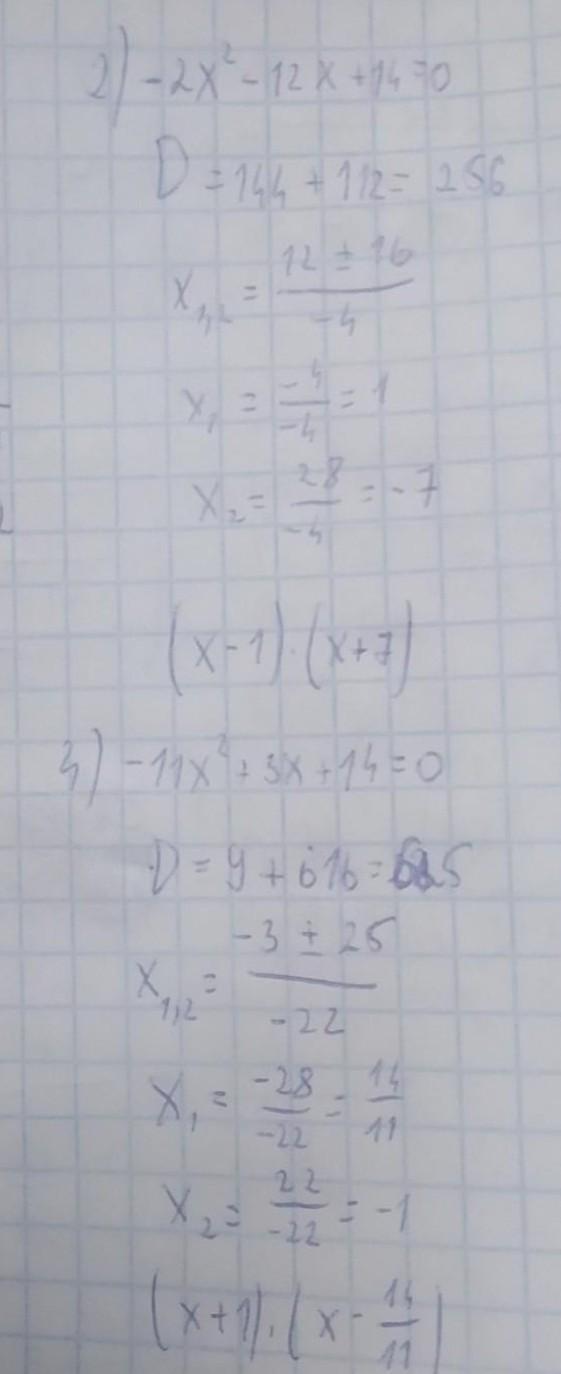 2) -2x² - 12x + 14 = 0
D = 144 + 112 = 256
x₁,₂ = (12 ± 16)/(-4)
x₁ = (-4)/(-4) = 1
x₂ = 28/(-4) = -7
(x - 1) · (x + 7)
3) -11x² + 3x + 14 = 0
D = 9 + 616 = 625
x₁,₂ = (-3 ± 25)/(-22)
x₁ = (-28)/(-22) = 14/11
x₂ = 22/(-22) = -1
(x + 1) · (x - 14/11)